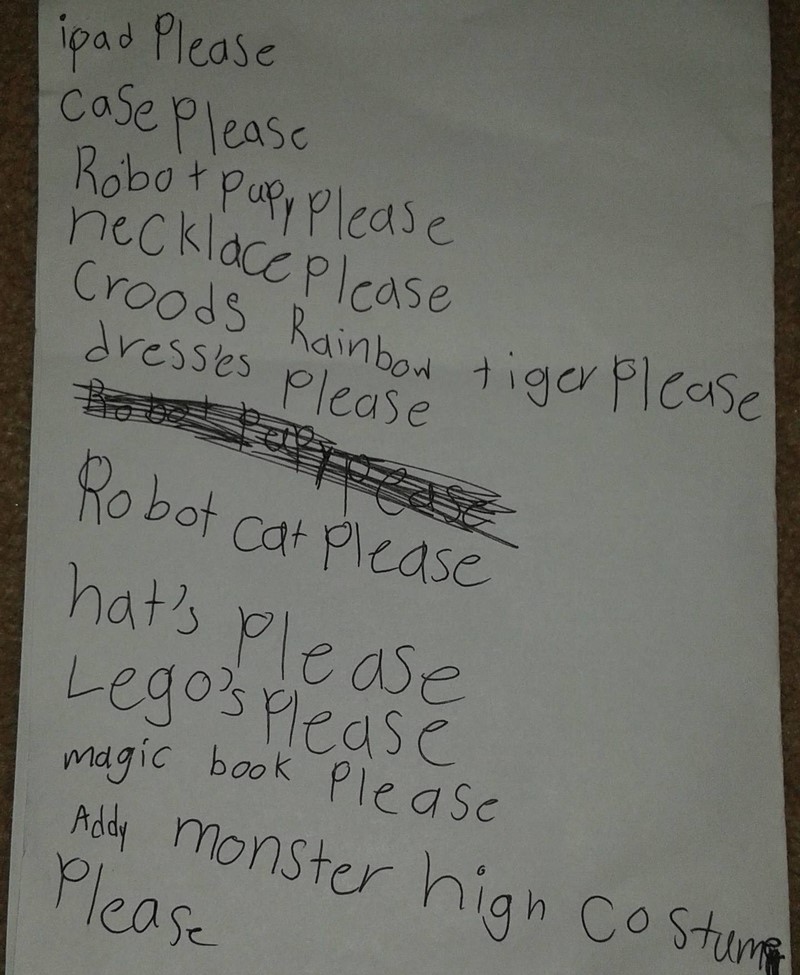 ipad Please
case Please
Robot pupy Please
necklace Please
Croods Rainbow tiger Please
dresses Please
Robot pupy pease
Robot cat Please
hat's Please
Lego's Please
magic book Please
Addy monster high costume
Please